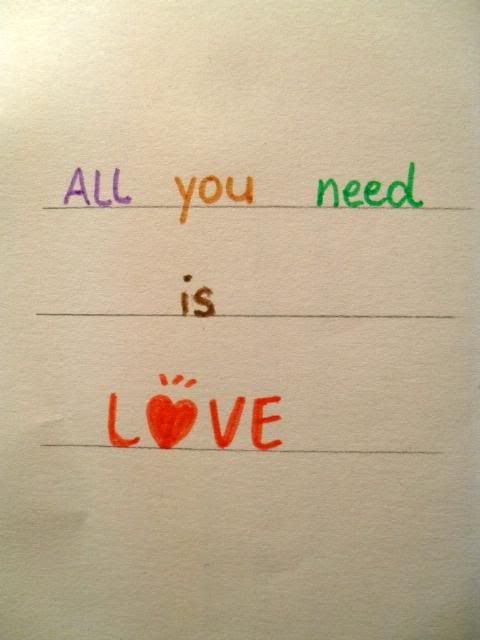 ALL you need
is
LOVE